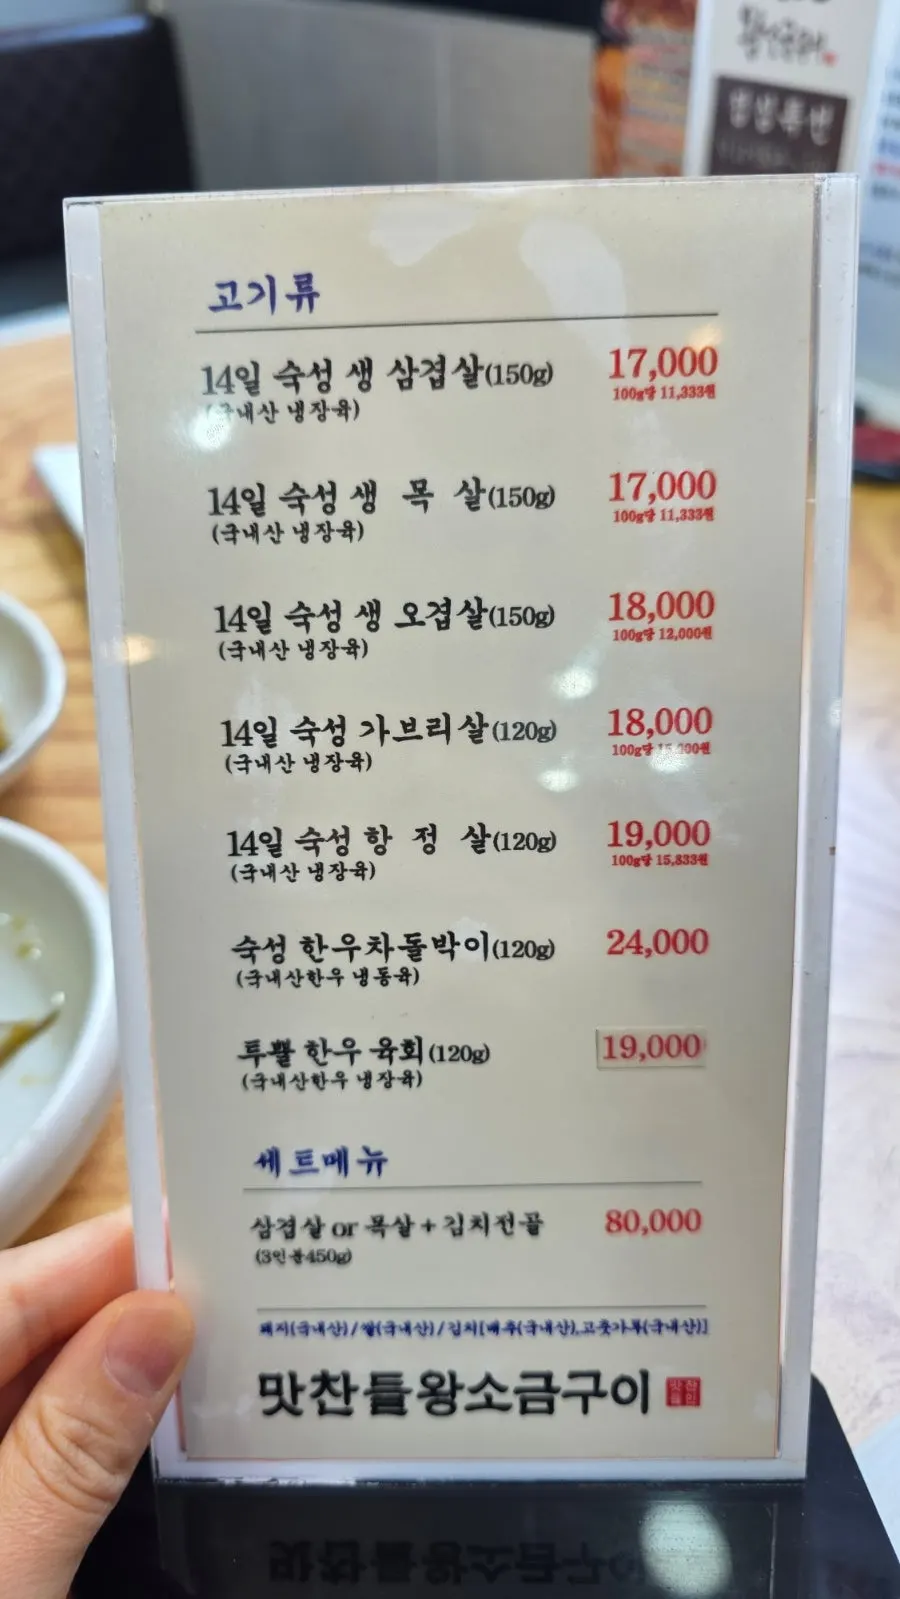 고기류
14일 숙성 생 삼겹살(150g) 17,000
100g당 11,333원
(국내산 냉장육)
14일 숙성 생 목 살(150g) 17,000
100g당 11,333원
(국내산 냉장육)
14일 숙성 생 오겹살(150g) 18,000
100g당 12,000원
(국내산 냉장육)
14일 숙성 가브리살(120g) 18,000
100g당
(국내산 냉장육)
14일 숙성 항 정 살(120g) 19,000
100g당 15,833원
(국내산 냉장육)
숙성 한우차돌박이(120g) 24,000
(국내산한우 냉동육)
투뿔 한우 육회(120g) 19,000
(국내산한우 냉장육)
세트메뉴
삼겹살 or 목살 + 김치전골 80,000
(3인분450g)
돼지(국내산)/쌀(국내산)/김치[배추(국내산),고춧가루(국내산)]
맛찬들왕소금구이